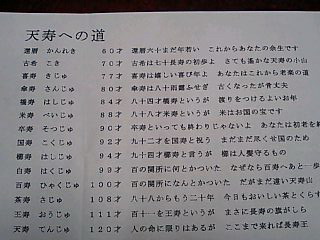 天寿への道
還暦 かんれき 60才 還暦六十まだ年若い これからあなたの余生です
古希 こき 70才 古希は七十長寿の初歩よ さても遥かな天寿の小山
喜寿 きじゅ 77才 喜寿は嬉しい喜び年よ あなたはこれから老楽の道
傘寿 さんじゅ 80才 傘寿は八十雨露ふせぎ 古くなったが昔丈夫
橋寿 はしじゅ 84才 八十四才橋寿というが 渡りをつけるよいお年
米寿 べいじゅ 88才 八十八才米寿というが 米はお国の宝です
卒寿 そつじゅ 90才 卒寿といっても終わりじゃないよ あなたは初老を終
国寿 こくじゅ 92才 九十二才を国寿と祝う まだまだ尽くせ国のため
櫛寿 くしじゅ 94才 九十四才櫛寿と言うが 櫛は人髪守るもの
白寿 はくじゅ 99才 百の関所に何とかついた なぜなら百寿へあと一歩
百寿 ひゃくじゅ 100才 百の関所になんとかついた だがまだ遠い天寿山
茶寿 さじゅ 108才 八十八からもう二十年 今日もおいしい茶とくらす
王寿 おうじゅ 111才 百十一を王寿というが まさに長寿の旗がしら
天寿 てんじゅ 120才 人の命に限りはあるが ここまで来れば長寿王